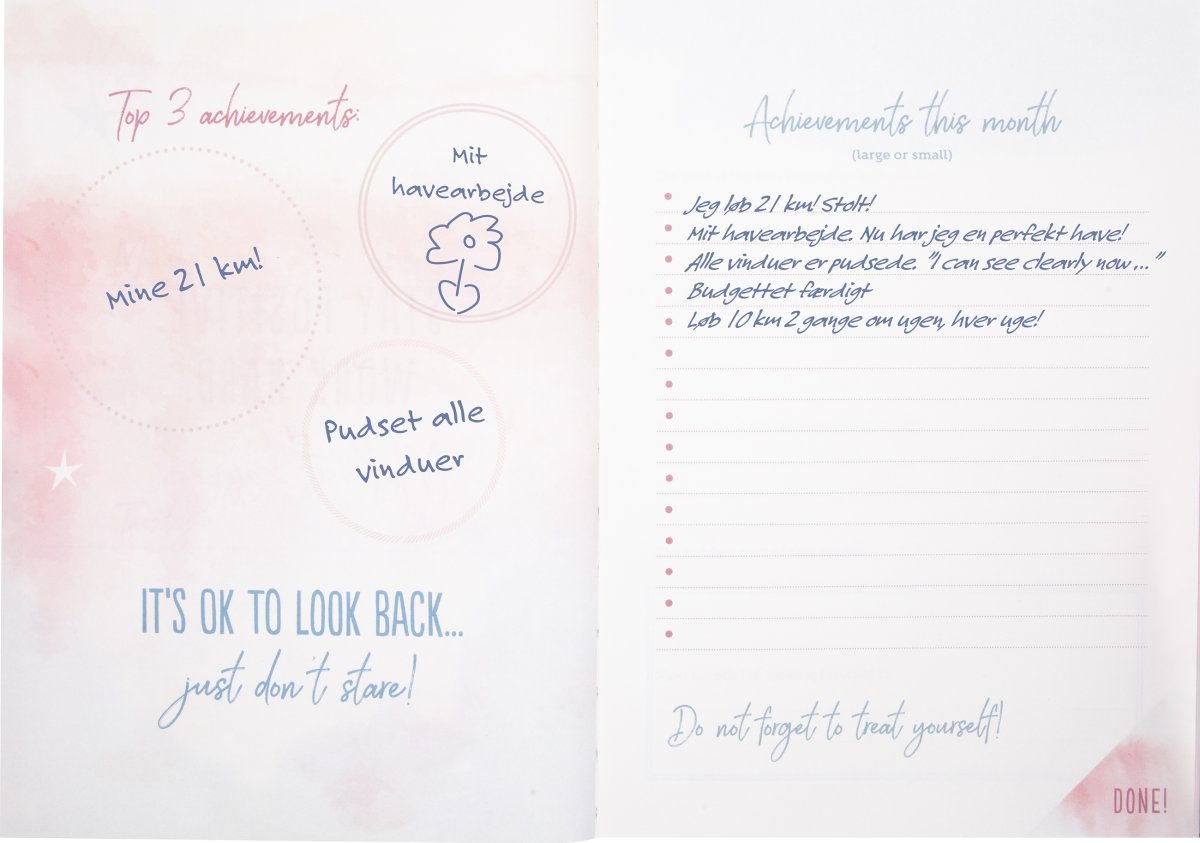 Top 3 achievements:
Mit
havearbejde
Mine 21 km!
Pudset alle
vinduer
IT'S OK TO LOOK BACK...
just don't stare!
Achievements this month
(large or small)
Jeg løb 21 km! Stolt!
Mit havearbejde. Nu har jeg en perfekt have!
Alle vinduer er pudsede. "I can see clearly now ..."
Budgettet færdigt
Løb 10 km 2 gange om ugen, hver uge!
Do not forget to treat yourself!
DONE!